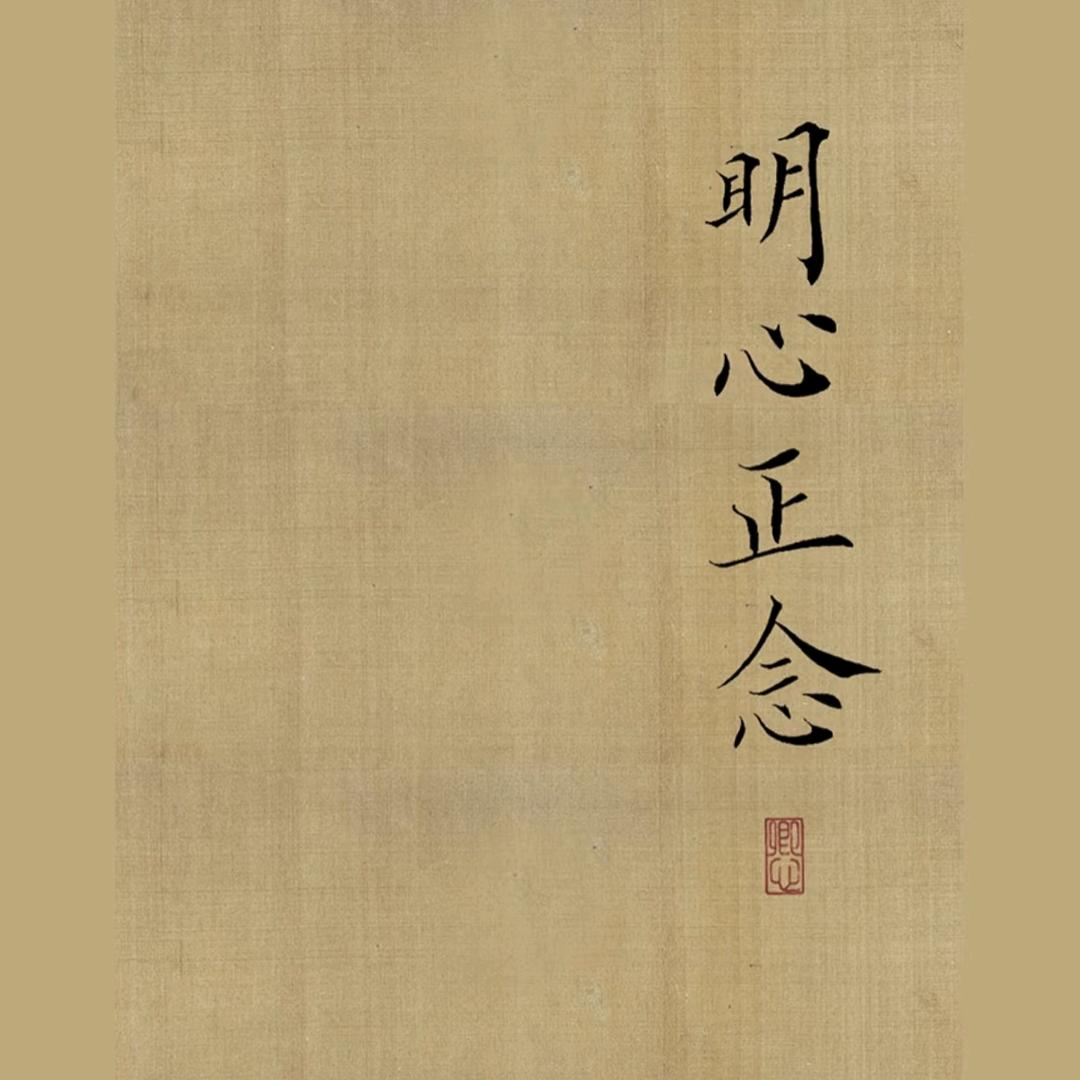 明心正念